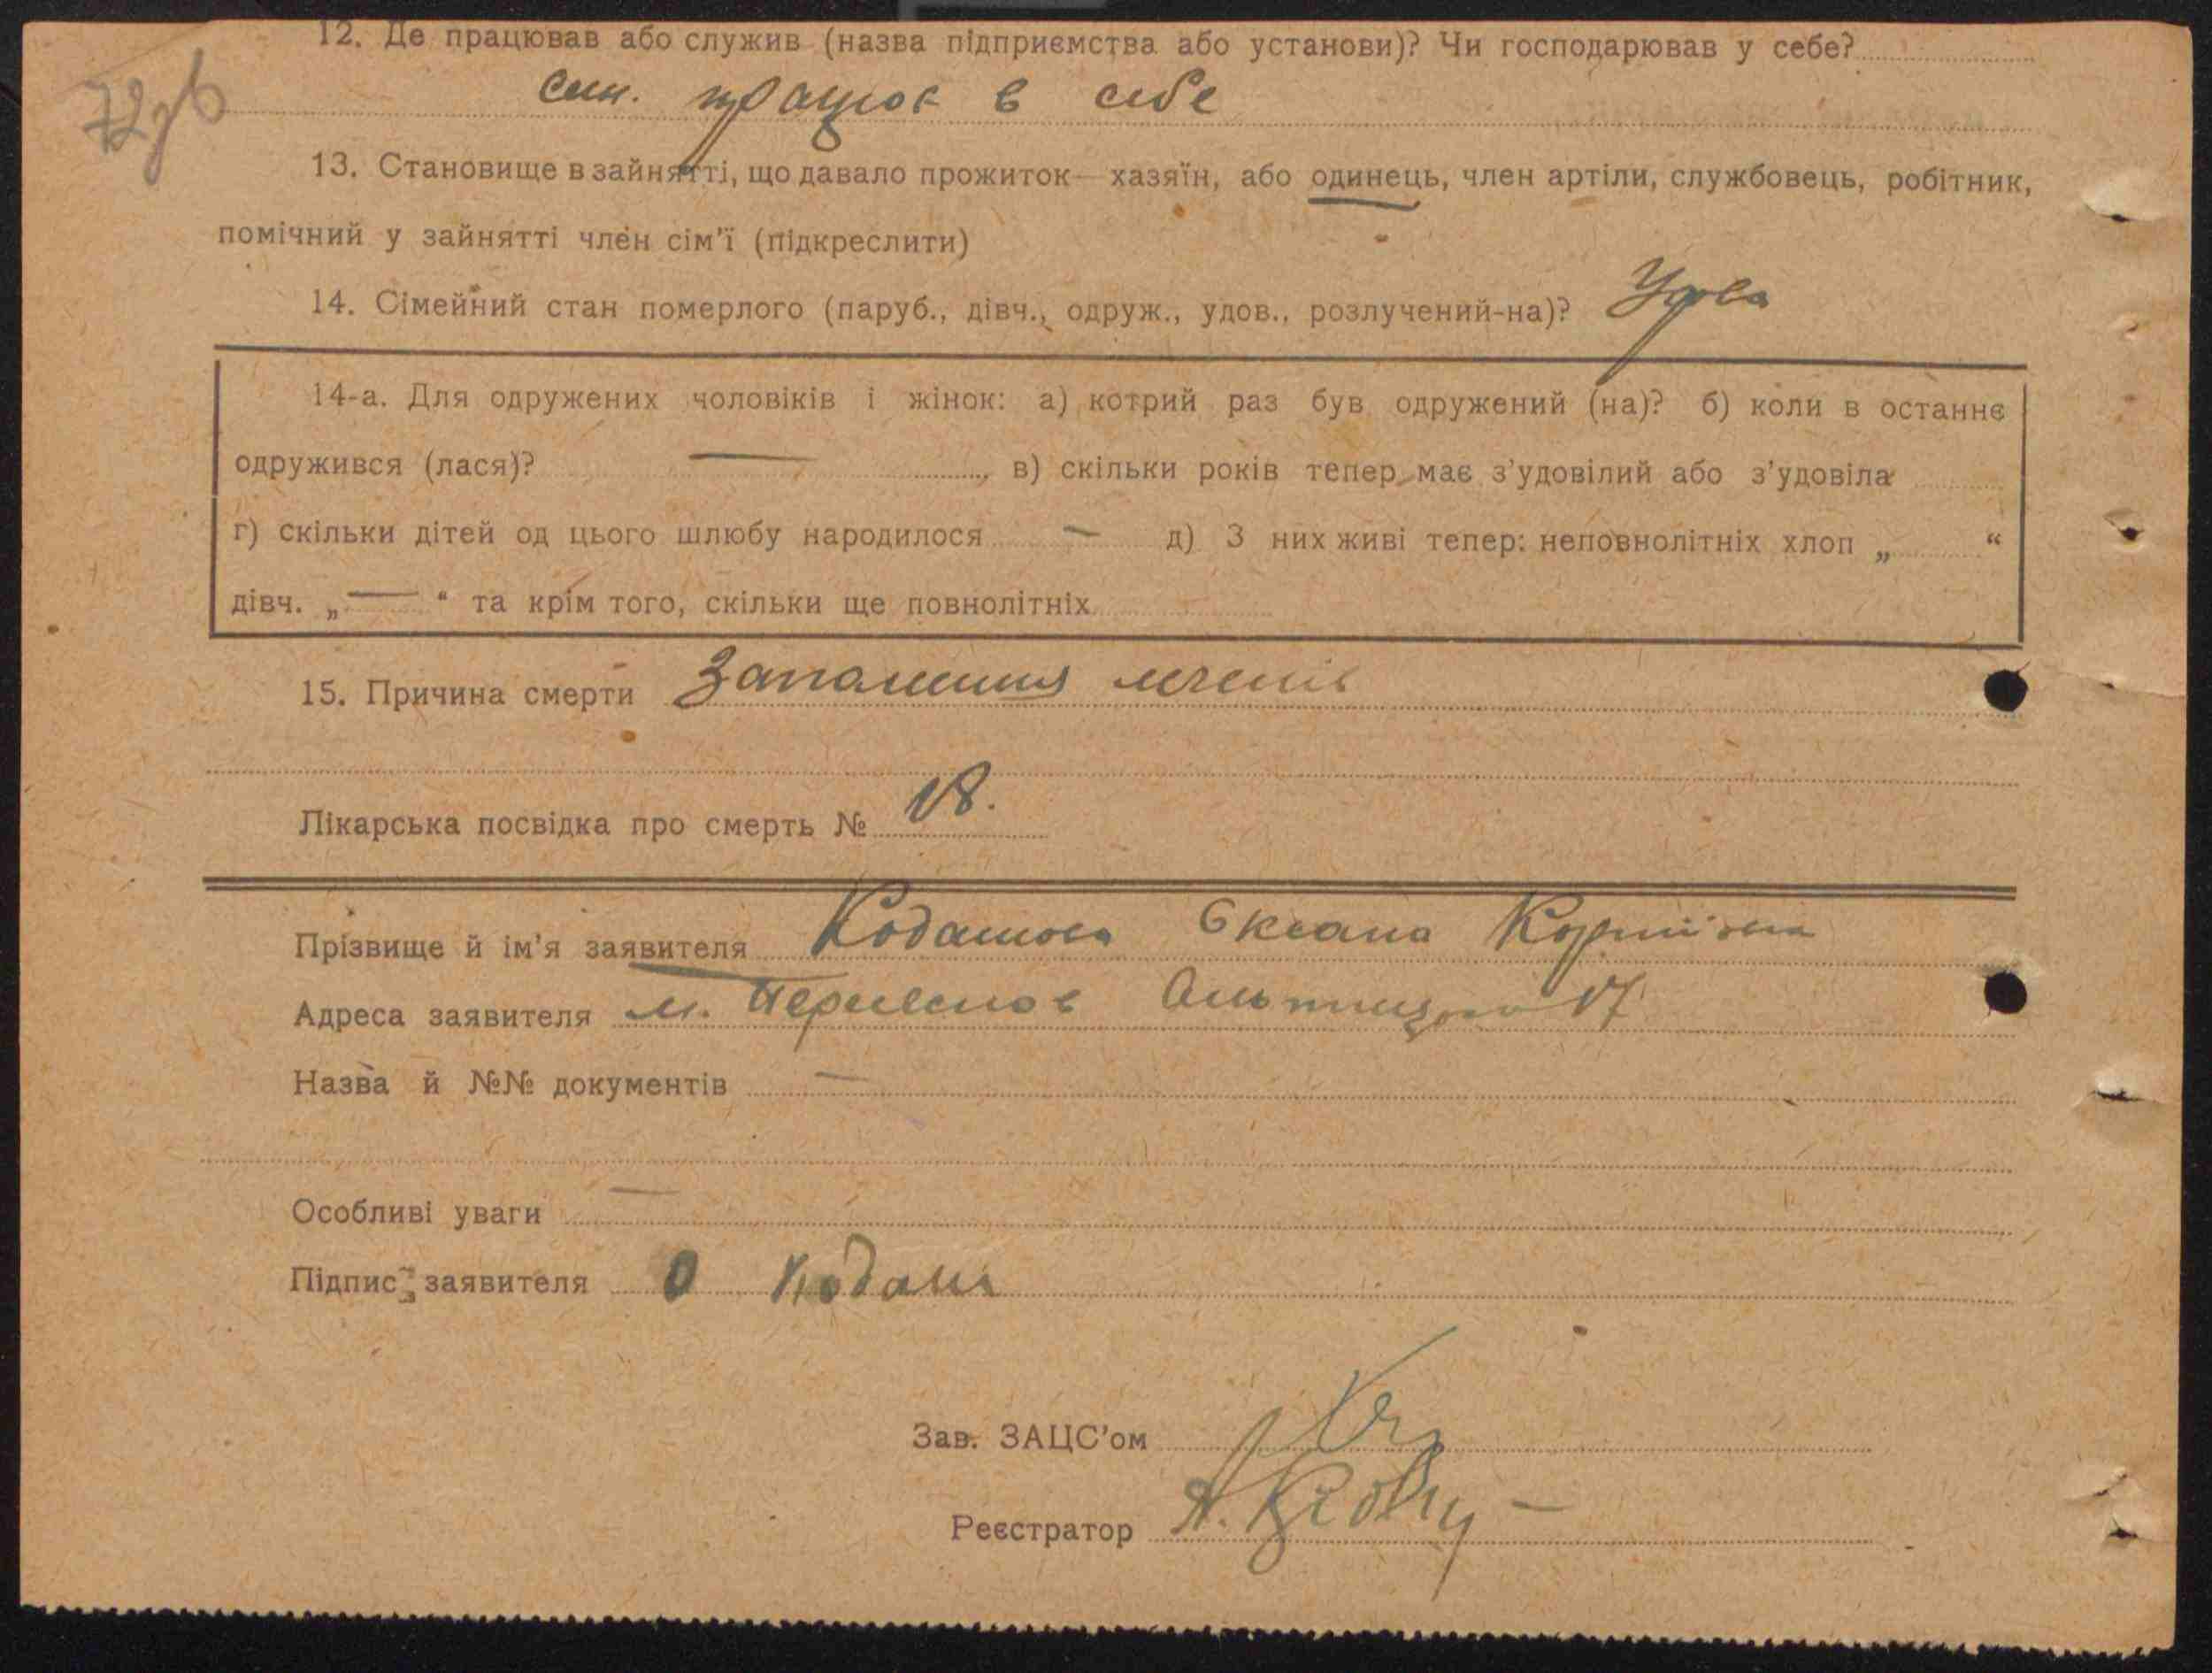 12. Де працював або служив (назва підприємства або установи)? Чи господарював у себе?
син. працює в себе
13. Становище в зайнятті, що давало прожиток—хазяїн, або одинець, член артіли, службовець, робітник,
помічний у зайнятті член сім'ї (підкреслити)
14. Сімейний стан померлого (паруб., дівч., одруж., удов., розлучений-на)? Удова
14-а. Для одружених чоловіків і жінок: а) котрий раз був одружений (на)? б) коли в останнє
одружився (лася)? — в) скільки років тепер має з'удовілий або з'удовіла
г) скільки дітей од цього шлюбу народилося — д) З них живі тепер: неповнолітніх хлоп „ “
дівч. „—“ та крім того, скільки ще повнолітніх
15. Причина смерти Запалення легенів
Лікарська посвідка про смерть № 18.
Прізвище й ім'я заявителя Оксана
Адреса заявителя м. 17
Назва й №№ документів —
Особливі уваги —
Підпис заявителя О Кодаш
Зав. ЗАЦС'ом
Реєстратор